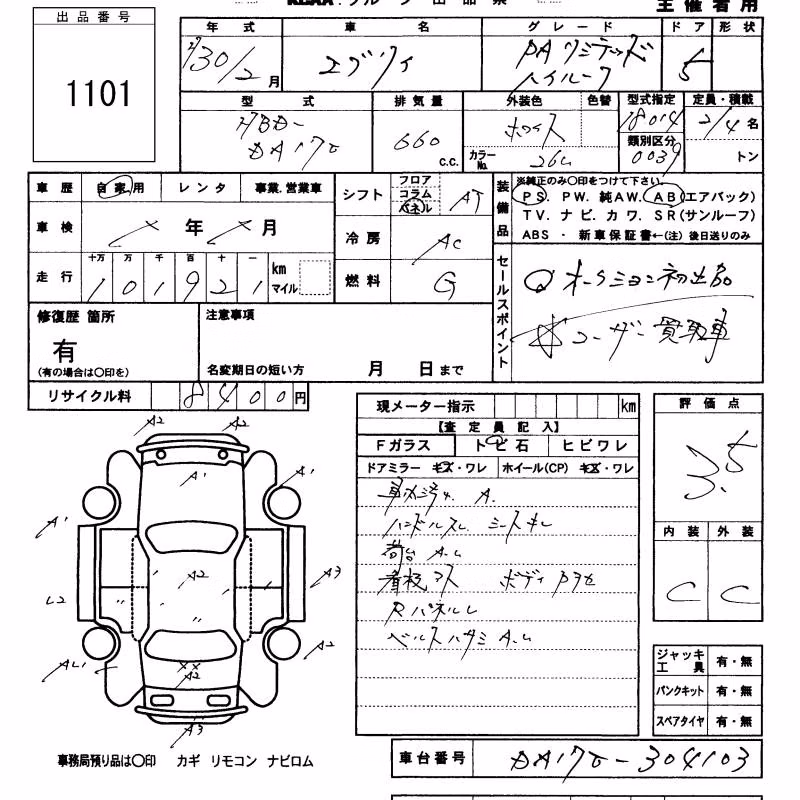 主催者用
出品番号
1101
年式 車名 グレード ドア 形状
H30/2月 エブリイ PAリミテッド ハイルーフ 5
型式 排気量 外装色 色替 型式指定 定員・積載
HBD- DA17V 660 c.c. ホワイト カラーNo. 26U 18014 2/4名
類別区分
0039 トン
車歴 自家用 レンタ 事業.営業車
シフト フロア コラム パネル AT
装備品 ※純正のみ〇印をつけて下さい。
PS. PW. 純AW. AB(エアバック)
TV. ナビ. カワ. SR(サンルーフ)
ABS ・ 新車保証書←(注) 後日送りのみ
車検 年 月
冷房 AC
走行 十万 万 千 百 十 一
101921 km マイル
燃料 G
セールスポイント
オークション初出品
☆ユーザー買取車
修復歴 箇所
有
(有の場合は〇印を)
注意事項
名変期日の短い方 月 日まで
リサイクル料 8400円
現メーター指示 km
【査定員記入】
Fガラス トビ石 ヒビワレ
ドアミラー キズ・ワレ ホイール(CP) キズ・ワレ
評価点
3.5
内装 外装
C C
A.
ハンドルスレ シートキレ
荷台 A.U
ボディ
RパネルU
A.U
A2 A2
A1 A1
A1 A2 A3
U2
A2
A3
ジャッキ工具 有・無
パンクキット 有・無
スペアタイヤ 有・無
事務局預り品は〇印 カギ リモコン ナビロム
車台番号 DA17V-304103